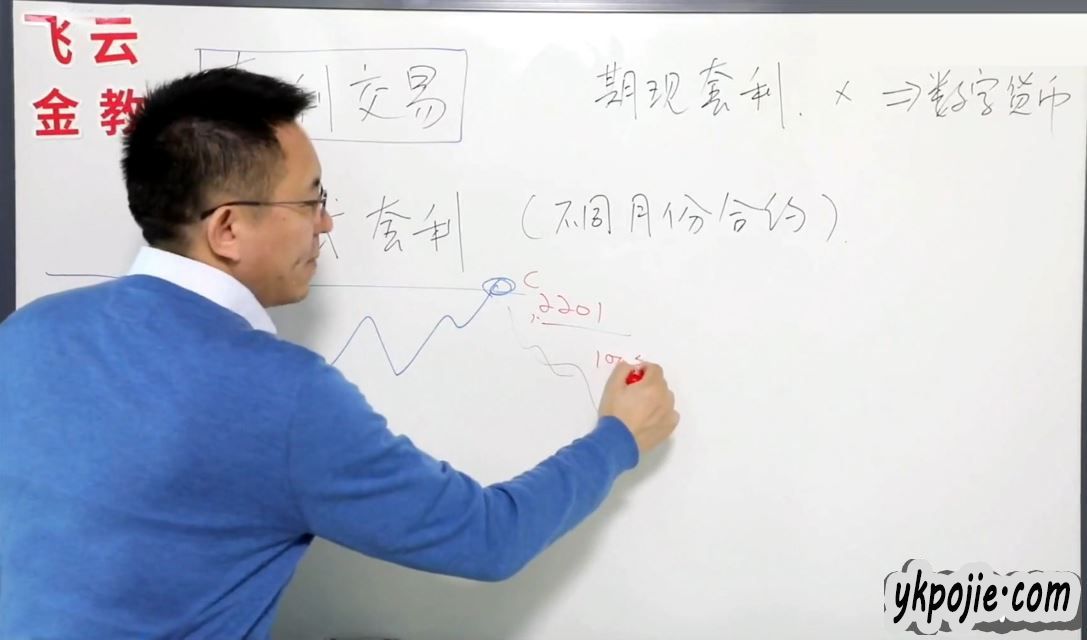 飞云
金教
利交易
期现套利. × ⇒数字货币
套利 (不同月份合约).
C
2201
ykpojie·com